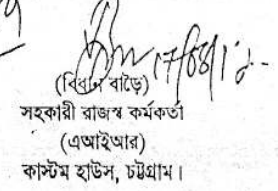 (বিধান বাড়ৈ)
সহকারী রাজস্ব কর্মকর্তা
(এআইআর)
কাস্টম হাউস, চট্টগ্রাম।